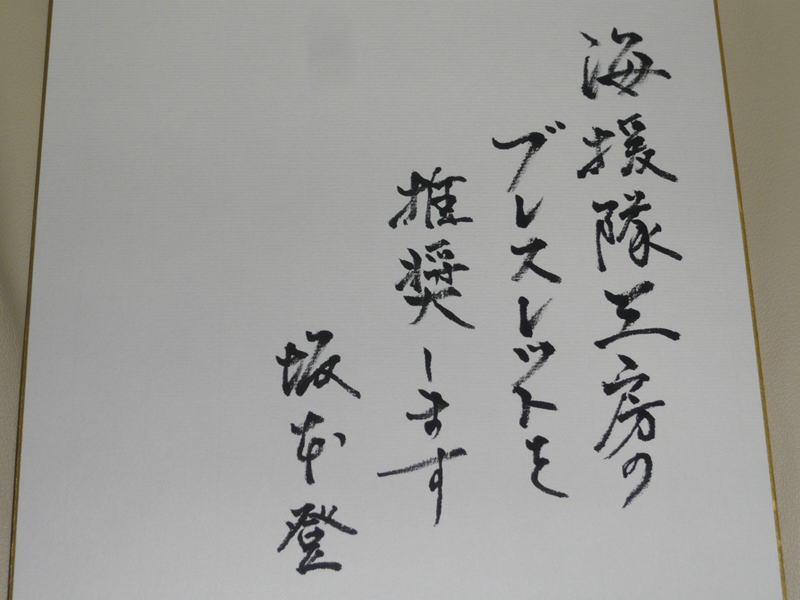 海援隊工房の
ブレスレットを
推奨します
坂本登